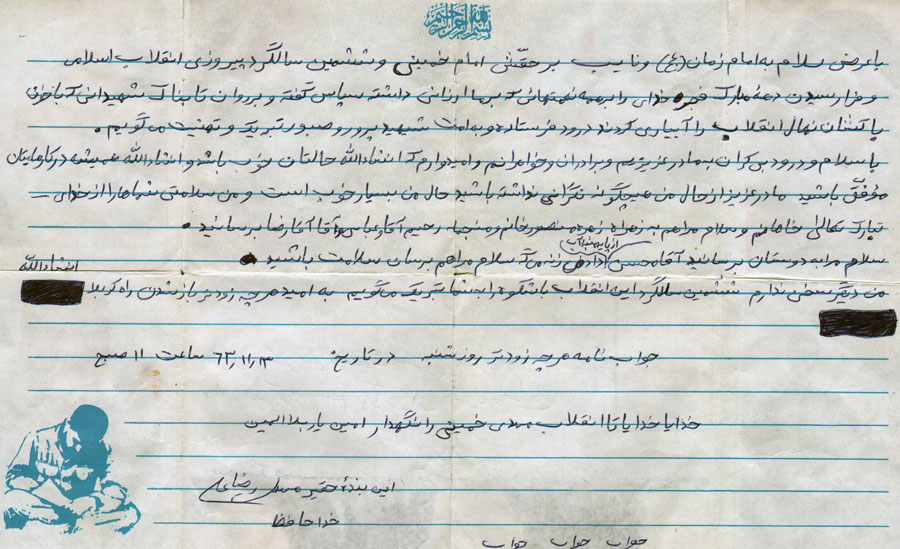 بسم الله الرحمن الرحیم
با عرض سلام به امام زمان (عج) و نایب بر حقش امام خمینی و ششمین سالگرد پیروزی انقلاب اسلامی
و فرا رسیدن دهه مبارک فجر خدای را بر همه نعمتهائی که بر ما ارزانی داشته سپاس گفته و بر روان تابناک شهیدانی که با خون
پاکشان نهال انقلاب را آبیاری کردند درود فرستاده و به امت شهید پرور و صبور تبریک و تهنیت می گویم .
با سلام و درود بی کران به مادر عزیزم و برادران و خواهرانم و امیدوارم که انشاءالله حالتان خوب باشد و انشاءالله همیشه در کارهایتان
موفق باشید مادر عزیز از حال من هیچگونه نگرانی نداشته باشید حال من بسیار خوب است و من سلامتی شماها را از خدای
تبارک تعالی خواهانم و سلام مرا هم به زهرا، زهره منصور خانم و رحیم آقا و عباس آقا آقا رضا برسانید .
سلام مرا به دوستان برسانید آقا محسن سلام مرا هم برسان سلامت باشید .
انشاءالله
من دیگر سخنی ندارم ششمین سالگرد این انقلاب باشکوه را به شما تبریک میگویم به امید هر چه زودتر باز شدن راه کربلا
جواب نامه هر چه زودتر روز شنبه در تاریخ ۶۳,۱۱,۱۳ ساعت ۱۱ صبح
خدایا خدایا تا انقلاب مهدی خمینی را نگهدار امین یا رب العالمین
این بنده حقیر رضا
خدا حافظ
جواب جواب جواب